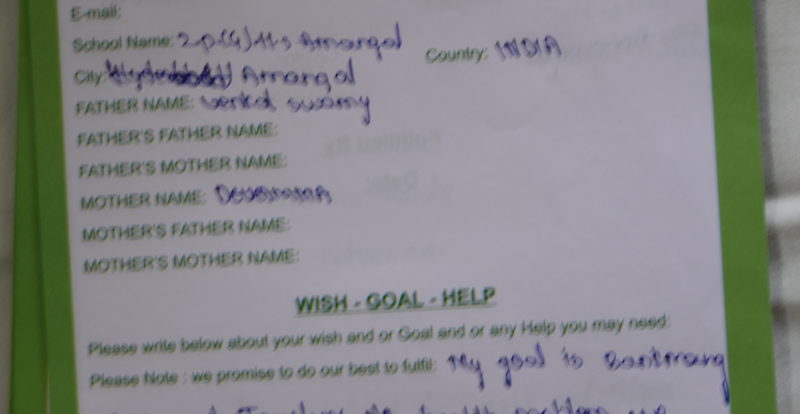 E-mail:
School Name: Z.P.(G).H.S Amangal
Country: INDIA
City: Amangal
FATHER NAME: swamy
FATHER'S FATHER NAME:
FATHER'S MOTHER NAME:
MOTHER NAME:
MOTHER'S FATHER NAME:
MOTHER'S MOTHER NAME:
WISH - GOAL - HELP
Please write below about your wish and or Goal and or any Help you may need:
Please Note : we promise to do our best to fulfil: My goal is